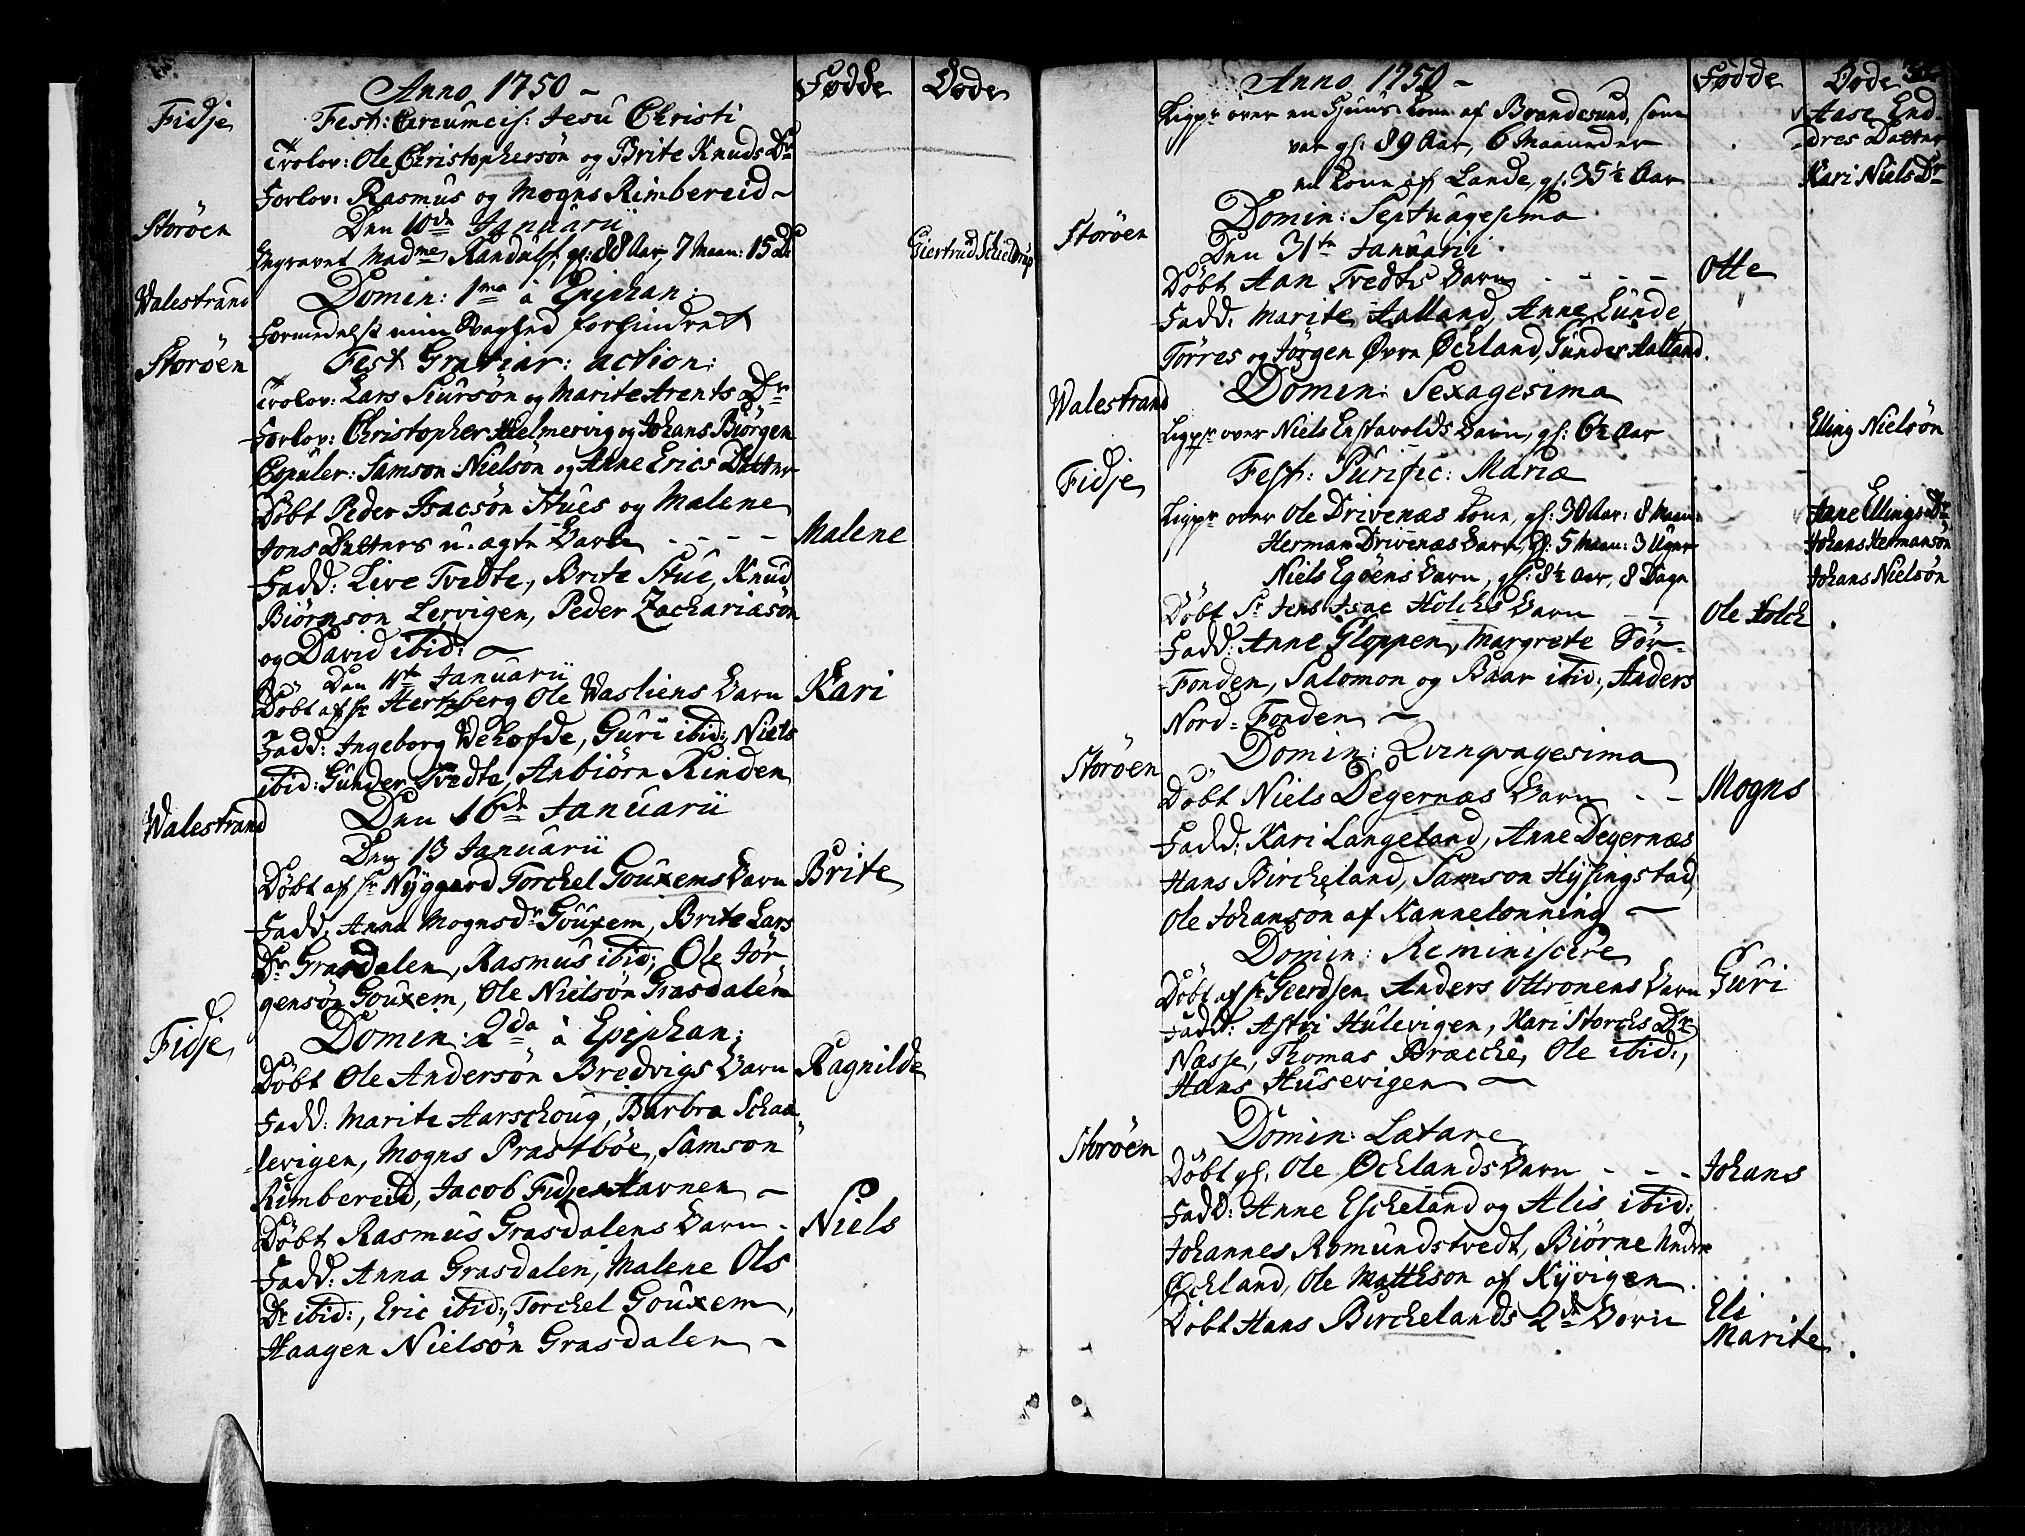 Anno 1750 - Fødde Døde
Fidje Fest: Circumcis: Jesu Christi
Trolov: Ole Christophersön og Brite Knuds Dr
Forlov: Rasmus og Mogns Rimbereid -
Storöen Den 10de Januarii
Begravet Madme Randulf, gl: 88 Aar, 7 Maan: 15 D. Giertrud Schieldrup
Walestrand Domin: 1ma à Epiphan:
Formedelst min Svaghed forhindret
Storöen Fest Gratiar: action:
Trolov: Lars Siursön og Marite Arents Dr
Forlov: Christopher Hielmervig og Johans Biörgen
Copuler: Samson Nielsön og Anne Erics Datter
Döbt Peder Isacsön Stues og Malene
Jons Datters u-ægte Barn - - - - Malene
Fadd: Live Tvedte, Brite Stue, Knud
Biörnson Lervigen, Peder Zachariasön
og David ibid: -
Den 11te Januarii
Döbt af Hr Hertzberg Ole Wasliens Barn Kari
Fadd: Ingeborg Wehofde, Guri ibid:, Niels
ibid: Gunder Tvedte, Anbiörn Rinden
Walestrand Den 16de Januarii
Den 13 Januarii
Döbt af Hr Nÿggard Torchel Gouxems Barn Brite
Fadd: Anna Mognsdr Gouxem, Brite Lars
Dr Grasdalen, Rasmus ibid:, Ole Jör
gensön Gouxem, Ole Nielsön Grasdalen
Fidje Domin: 2da à Epiphan:
Döbt Ole Andersön Bredvigs Barn Ragnilde
Fadd: Marite Aarschoug, Barbra Schaa
levigen, Mogns Prastböe, Samson
Rimbereid, Jacob Fidje Havnen -
Döbt Rasmus Grasdalens Barn - Niels
Fadd: Anna Grasdalen, Malene Ols
Dr ibid:, Eric ibid:, Torchel Gouxem,
Haagen Nielsön Grasdalen -
Anno 1750 - Fødde Døde
Ligpr over en Huus-Kone af Brandesund, som Aase End-
var gl: 89 Aar, 6 Maaneder dres Datter
en Kone af Lande, gl: 35 1/2 Aar Kari Niels Dr
Storöen Domin: Septuagesima
Den 31te Januarii
Döbt Aan Tvedtes Barn - - - - Otte
Fadd: Marite Aalland, Anne Lunde
Törres og Jörgen Øvre Øchland, Gunder Aalland.
Walestrand Domin: Sexagesima
Ligpr over Niels Enstavolds Barn, gl: 6 1/2 Aar Elling Nielsön
Fidje Fest: Purific: Mariæ
Ligpr over Ole Drivenæs Kone, gl: 30 Aar: 8 Maan: Anne Ellings Dr
Herman Drivenæs Barn, gl: 5 Maan: 3 Uger Johans Hermansön
Niels Egöens Barn, gl: 8 1/2 Aar, 8 Dage Johans Nielsön
Döbt Sr Jens Isac Holchs Barn - - Ole Holch
Fadd: Anne Gloppen, Margrete Sör-
Fonden, Salomon og Baar ibid:, Anders
Nord-Fonden -
Storöen Domin: Qvinqvagesima
Döbt Niels Degernæs Barn - - Mogns
Fadd: Kari Langeland, Anne Degernæs
Hans Bircheland, Samson Hÿsingstad
Ole Johansön af Kannelonning -
Domin: Reminiscere
Döbt af Hr Geerdsen Anders Ottronens Barn Guri
Fadd: Astri Hulevigen, Kari Storchs Dr
Næsse, Thomas Bræcche, Ole ibid:,
Hans Husevigen -
Storöen Domin: Lætare
Döbt gl: Ole Øchlands Barn - - - Johans
Fadd: Anne Escheland og Alis ibid:
Johannes Romundstvedt, Biörne Nedre
Øchland, Ole Mattheson af Nÿvigen.
Döbt Hans Birchelands 2de Börn Eli
Marite